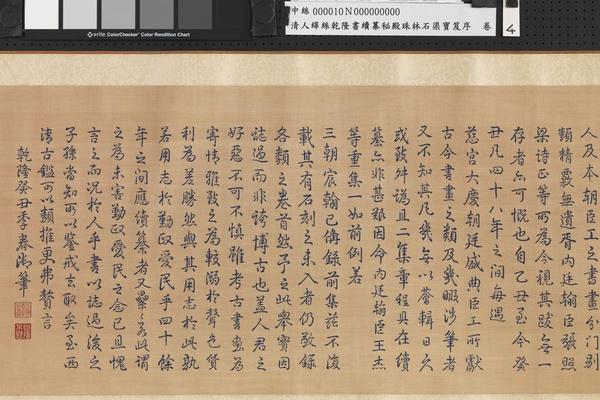 x-rite ColorChecker Color Rendition Chart
中絲000010N000000000
清人緙絲乾隆書續纂秘殿珠林石渠寶笈序 卷
4
人及本朝臣工之書畫分門別
類精覈無遺胥內廷翰臣張照
梁詩正等所為今視其跋無一
存者亦可慨也自乙丑至今癸
丑凡四十八年之間每遇
慈宮大慶朝廷盛典臣工所獻
古今書畫之類及幾暇涉筆者
又不知其凡幾無以薈輯日久
或致舛譌且二集章程具在續
纂亦非甚艱因命內廷翰臣王杰
等重集一如前例若
三朝宸翰已備錄前集茲不復
載其有石刻之未入者仍敬錄
各類之卷首然予之此舉實因
誌過而非誇博古也蓋人君之
好惡不可不慎雖考古書畫為
寄情雅致之為較溺於聲色貨
利為差勝然與其用志於此孰
若用志於勤政愛民乎四十餘
年之間應續纂者又纍若此謂
之為未害勤政愛民之念已且愧
言之而況於人乎書以誌過後之
子孫當知所以鑒戒去取矣至西
清古鑑可以類推更弗贅言
乾隆癸丑季春御筆